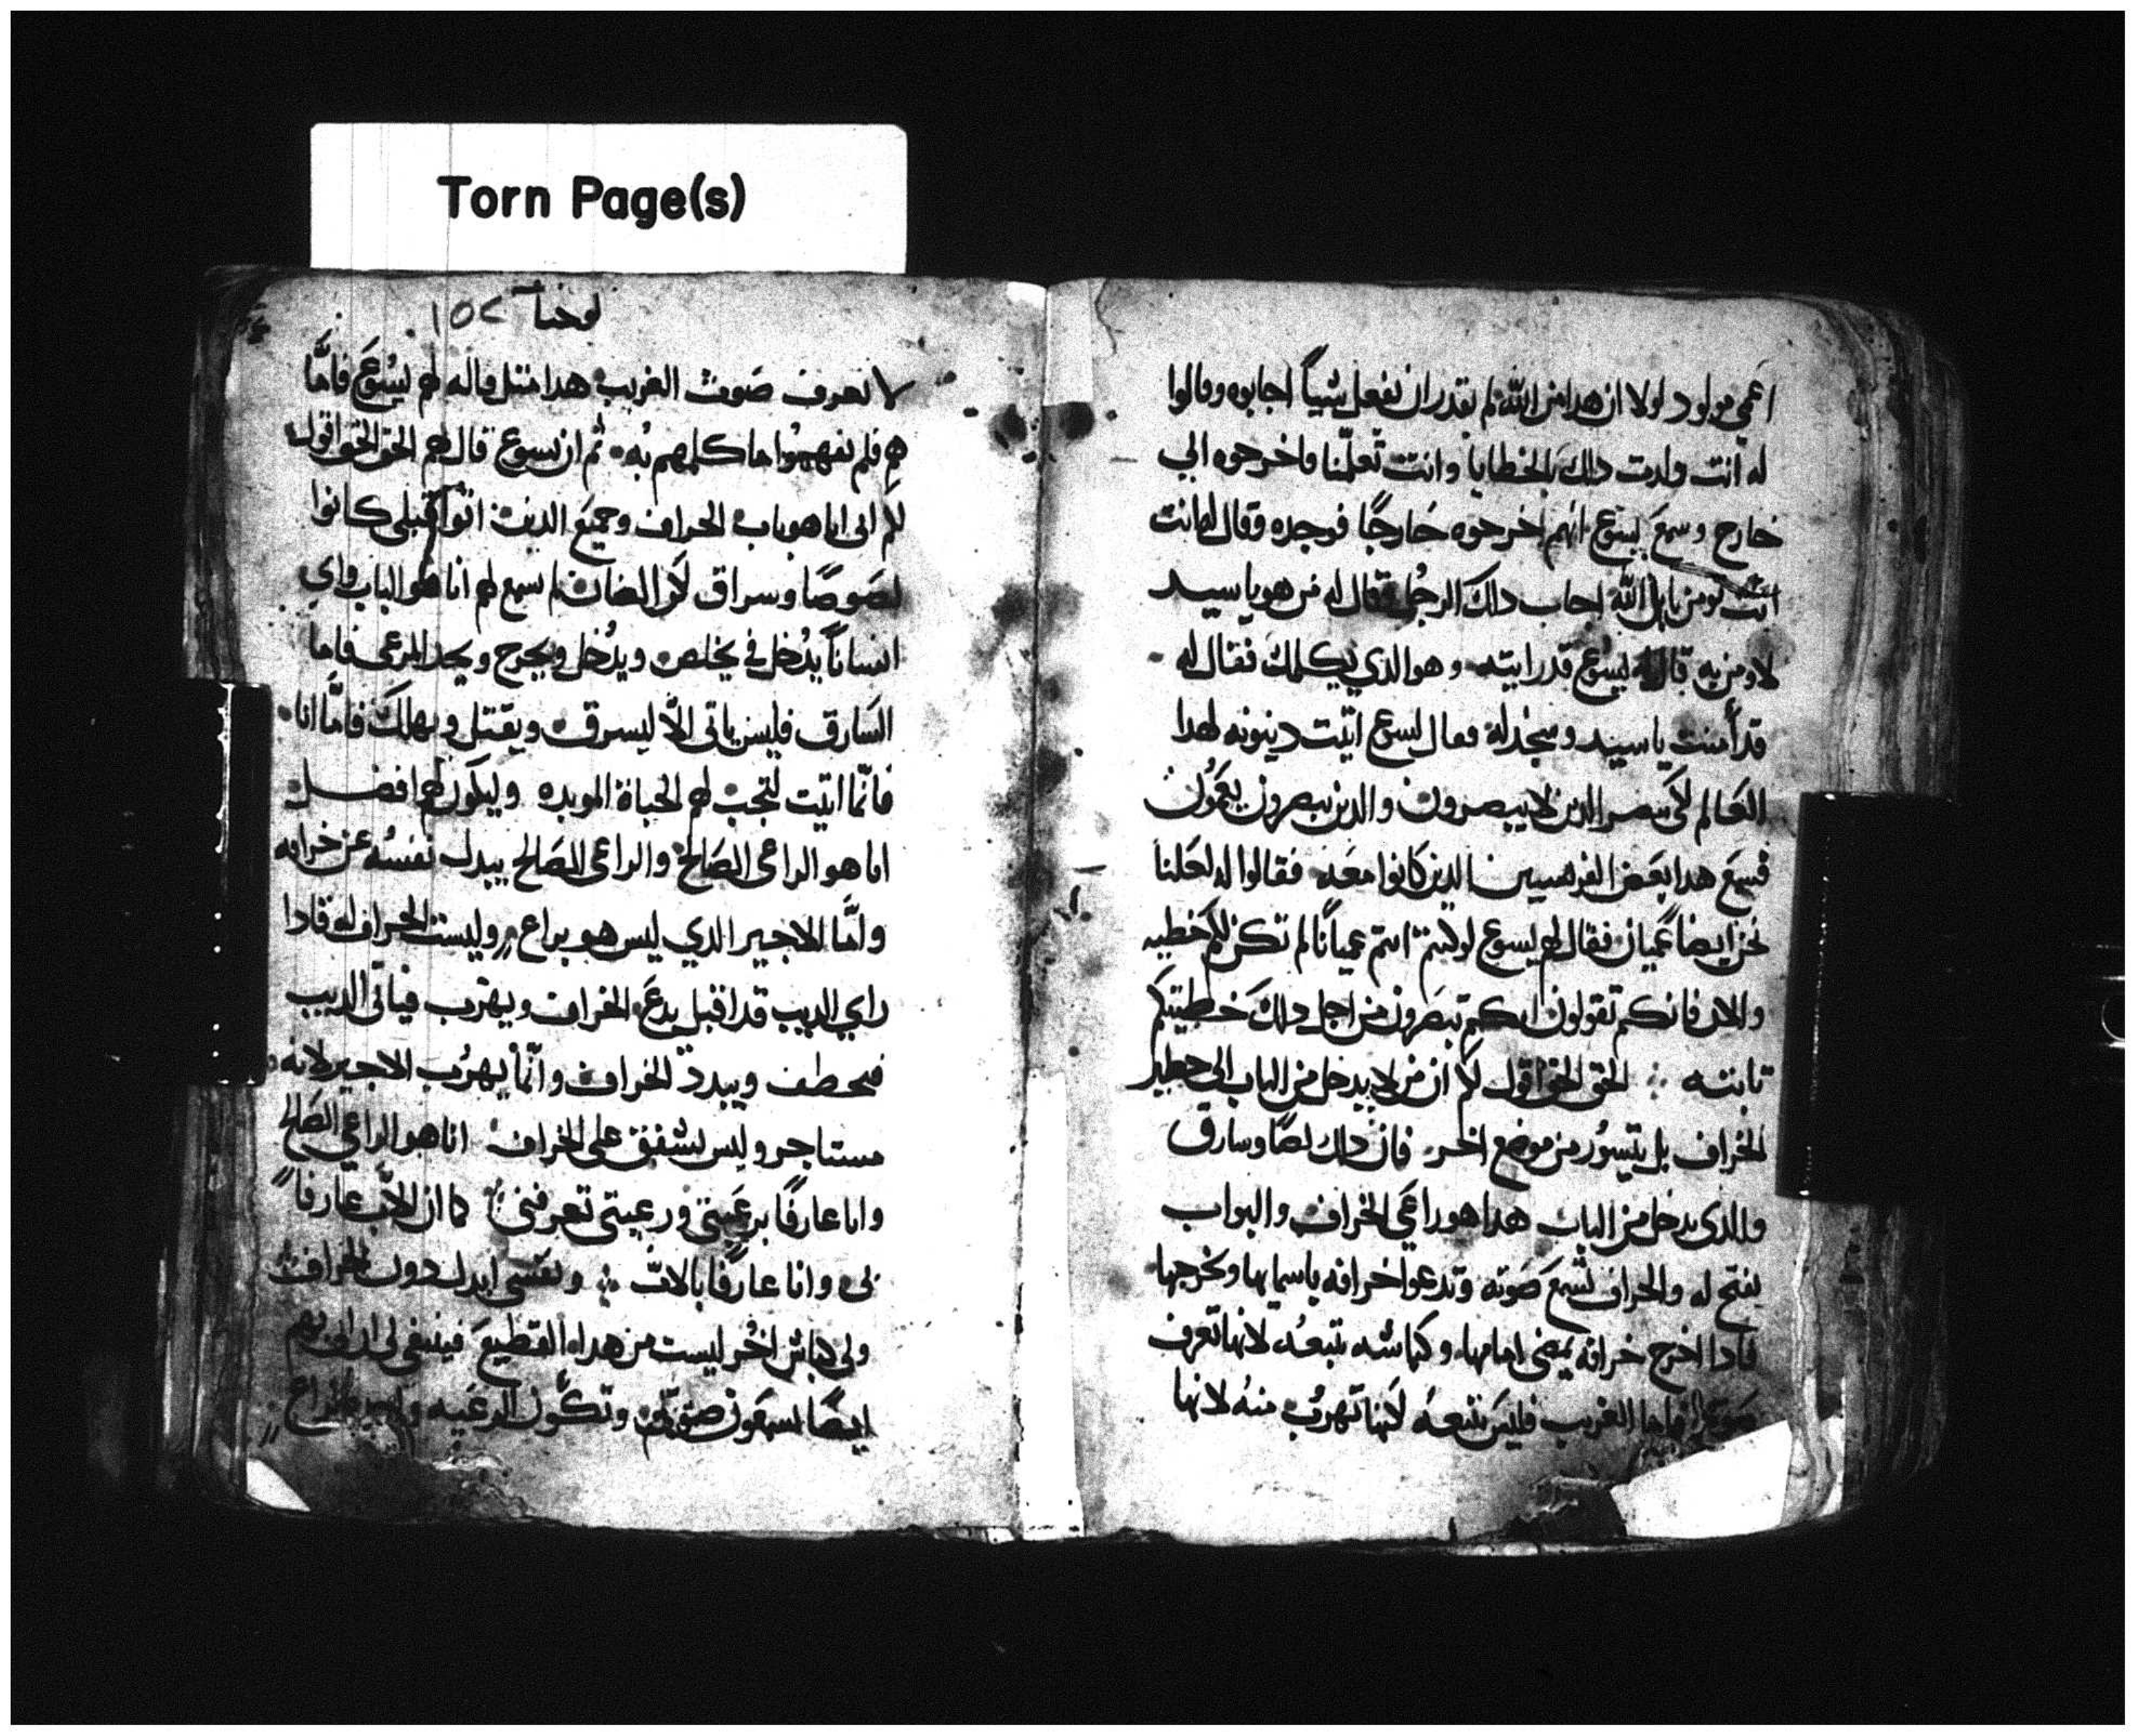 Torn Page(s)
اعمي مولود لولا ان هدا من الله لم يقدر ان يفعل شياً اجابوه وقالوا
له انت ولدت دلك بالخطايا وانت تعلّمنا فاخرجوه الي
خارج وسمع يسوع انهم اخرجوه خارجًا فوجده وقال له انت
تومن بابن الله اجاب داك الرجُل فقال له من هو يا سيد
لاومن به قال له يسوع قد رايته وهو الدي يكلمك فقال له
قد أمنت يا سيد وسجد له فقال يسوع اتيت دينونه لهدا
العالم لكي يبصر الدين لا يبصرون والدين يبصرون يعمُون
فسمع هدا بعض الفريسيين الدين كانوا معه فقالوا له لعلنا
نحن ايضاً عميان فقال لهم يسوع لو كنتم عمياناً لم تكن لكم خطيه
والان فانكم تقولون انكم تبصرون من اجل دلك خطيتكم
تابته ∴ الحق الحق اقول لكم ان من لا يدخل من الباب الى حظير
الخراف بل يتسوُر من موضع اخر فان داك لصًا وسارق
والدى يدخل من الباب هدا هو راعي الخراف والبواب
يفتح له والخراف تسمع صوته وتدعوا خرافه باسمايها ويخرجها
فادا اخرج خرافه يمضي امامها وكباشه تتبعه لانها تعرف
صوته فاما الغريب فليس تتبعهُ لكنها تهرب منهُ لانها
يوحنا ١٥٢
لا تعرف صوت الغريب هدا متل قاله لهم يسوع فامّا
هم فلم يفهموا ما كلمهم به ثم ان يسوع قال لهم الحق الحق اقول
لكم انى انا هو باب الخراف وجميع الدين اتوا قبلي كانوا
لصوصًا وسراق لكن الضان لم يسمع لهم انا هو الباب واي
انساناً يدُخل في يخلص ويدُخل ويخرج ويجد المرعى فاما
السارق فليس ياتى الّا ليسرق ويقتل ويهلك فامّا انا
فانّما اتيت لتجب لهم الحياة الموبده وليكون لهم افضل
انا هو الراعى الصالح والراعى الصالح يبدل نفسُه عن خرافه
وامّا الاجير الدي ليس هو براع وليست الخراف له فادا
راي الديب قد اقبل يدع الخراف ويهرب فياتى الديب
فيخطف ويبدد الخراف وانّما يهرُب الاجير لانه
مستاجر وليس يشفق على الخراف انا هو الراعي الصالح
وانا عارفًا برعيتى ورعيتى تعرفنى كما ان الاب عارفا
بى وانا عارفًا بالاب ∴ ونفسى ابدل دون الخراف
ولى كباش اخُر ليست من هدا القطيع فينبغى لى ان اتى بهم
ايضًا يسمعون صوتى وتكُون الرعيه واحده لراع